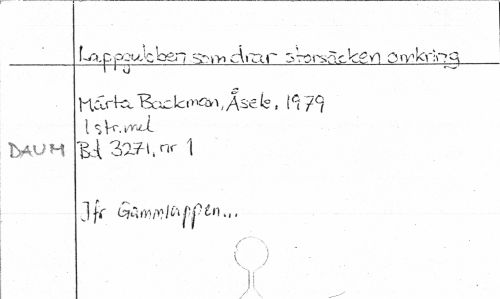 Lappgubben som drar storsäcken omkring
Märta Backman, Åsele, 1979
1 str. mel
DAUM Bd 3271, nr 1
Jfr Gammlappen...